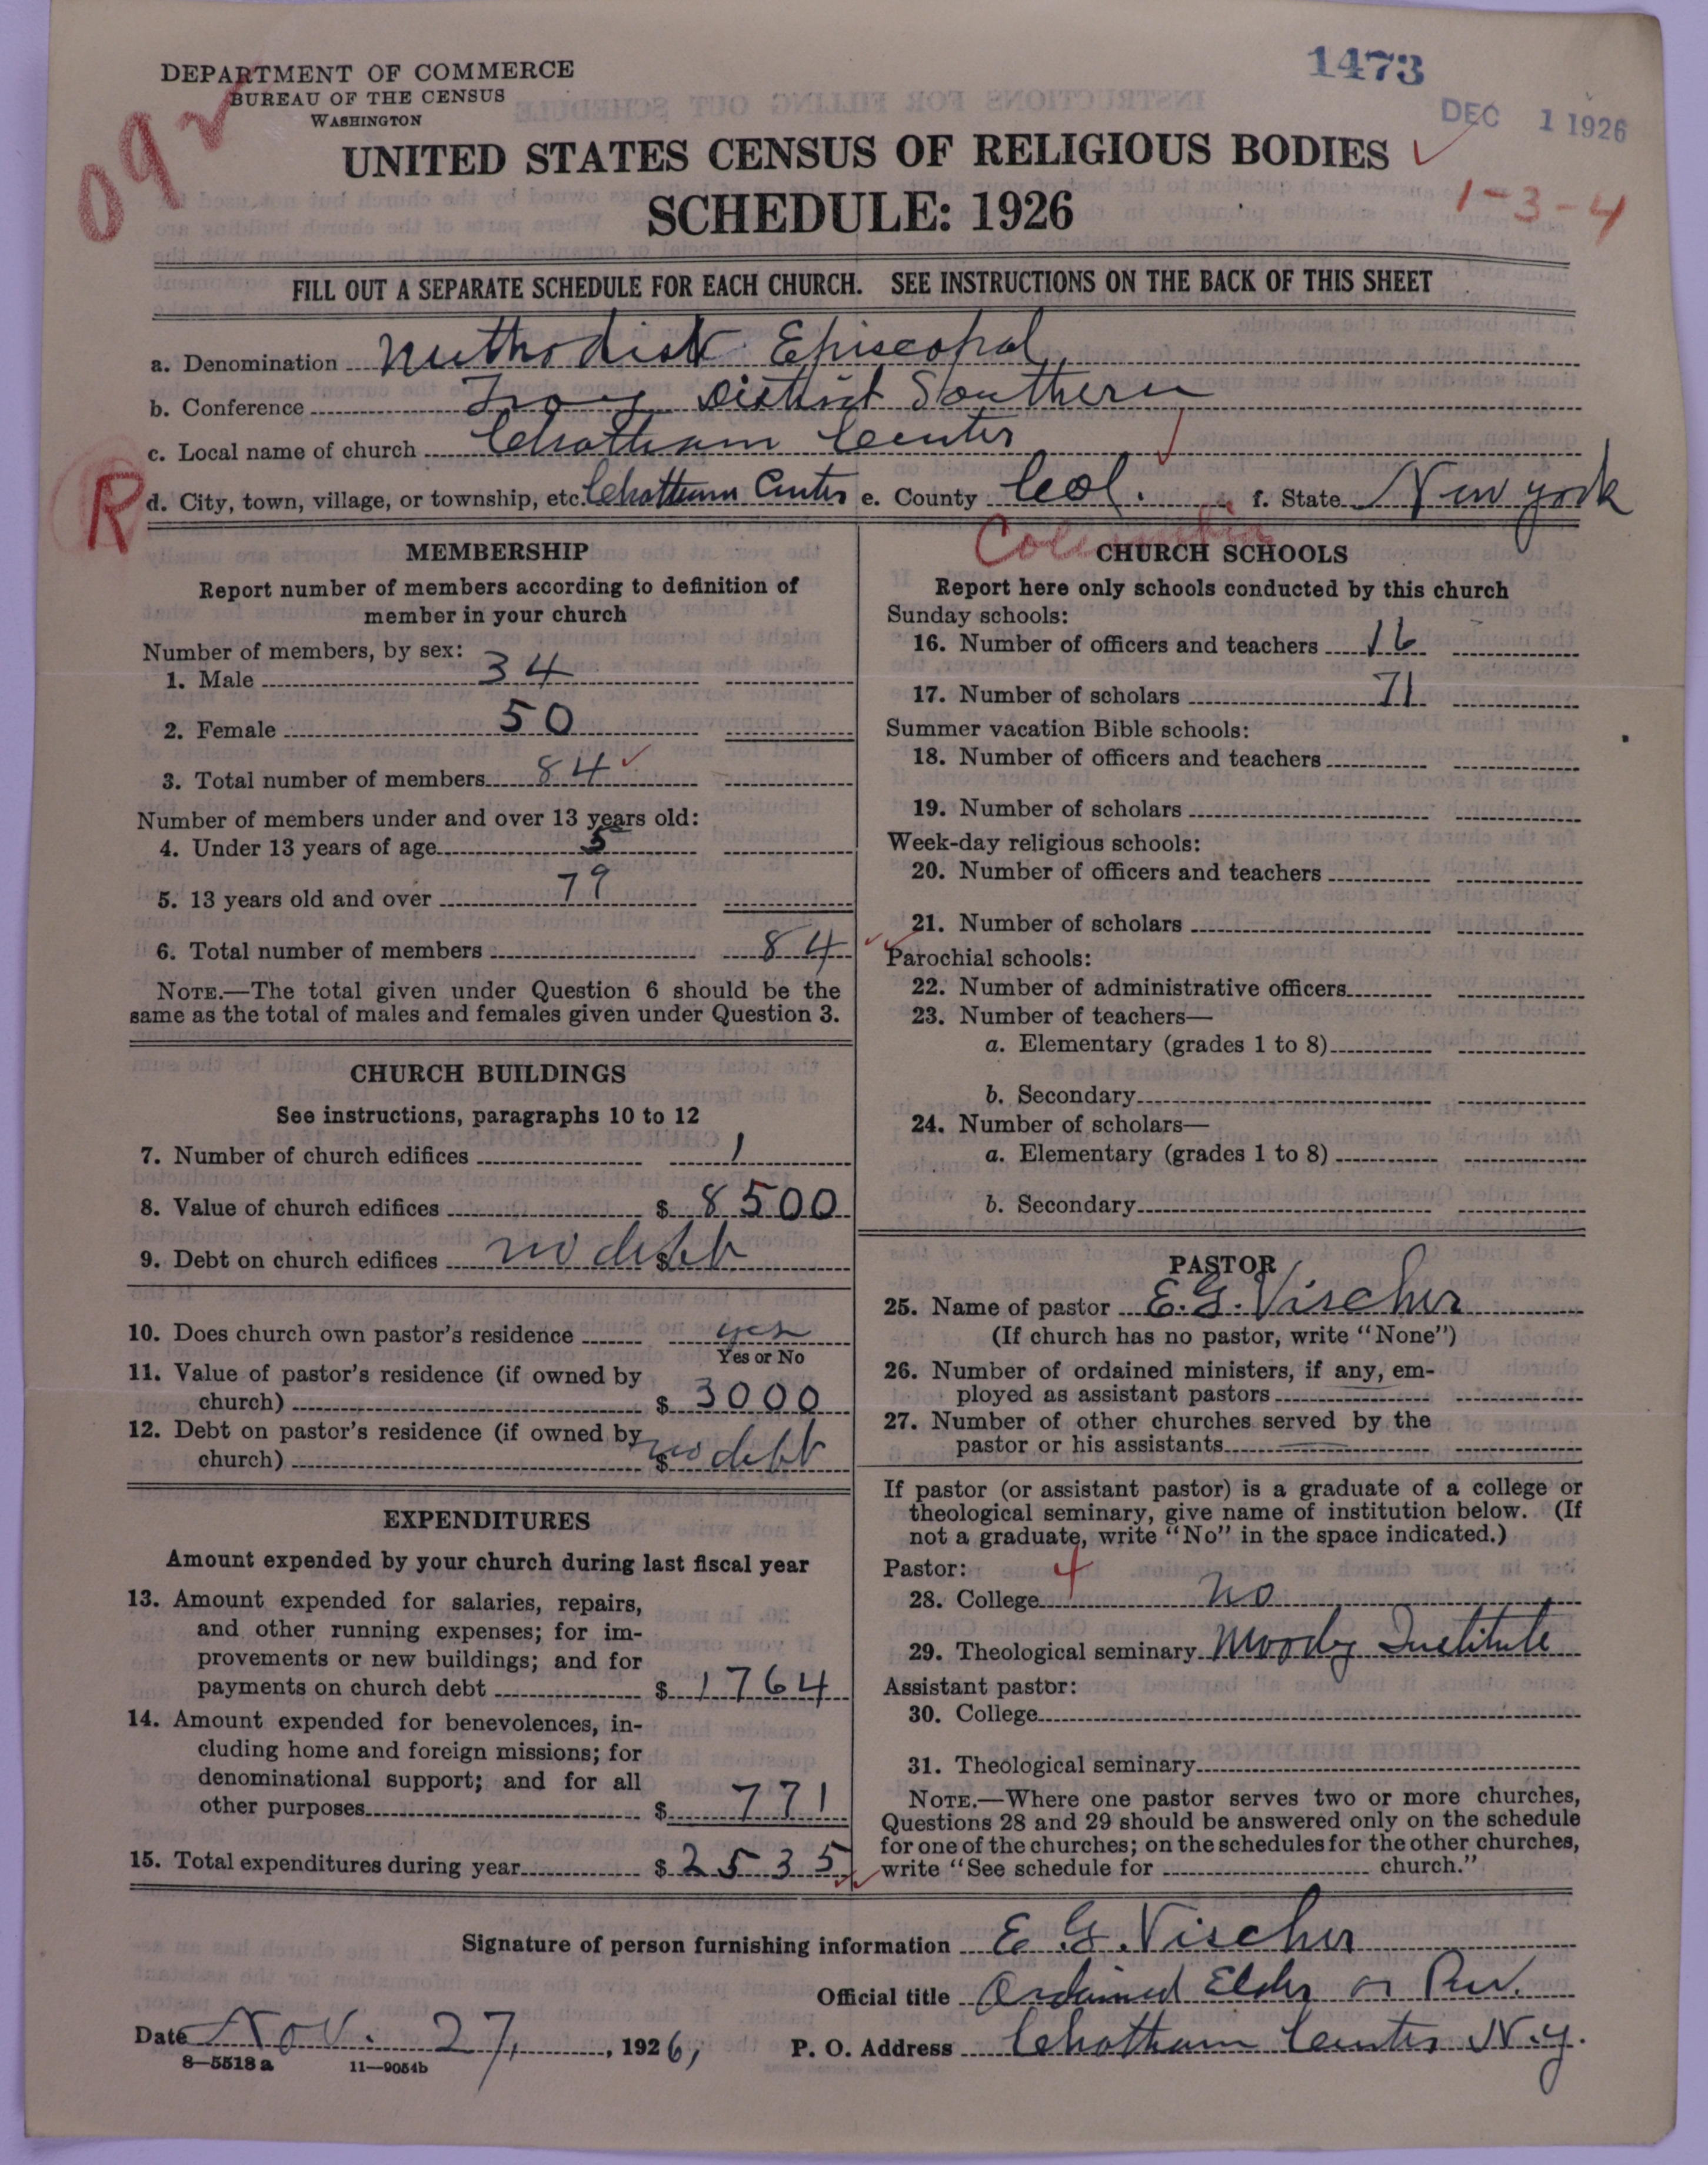 DEPARTMENT OF COMMERCE
BUREAU OF THE CENSUS
WASHINGTON
1473
DEC 1 1926
092
UNITED STATES CENSUS OF RELIGIOUS BODIES
1-3-4
SCHEDULE: 1926
FILL OUT A SEPARATE SCHEDULE FOR EACH CHURCH. SEE INSTRUCTIONS ON THE BACK OF THIS SHEET
a. Denomination Methodist Episcopal
b. Conference Troy District Southern
c. Local name of church Chatham Center
R
d. City, town, village, or township, etc. Chatham Center e. County Col. f. State New york
Columbia
MEMBERSHIP
Report number of members according to definition of
member in your church
Number of members, by sex:
1. Male 34
2. Female 50
3. Total number of members 84
Number of members under and over 13 years old:
4. Under 13 years of age 5
5. 13 years old and over 79
6. Total number of members 84
NOTE.—The total given under Question 6 should be the
same as the total of males and females given under Question 3.
CHURCH BUILDINGS
See instructions, paragraphs 10 to 12
7. Number of church edifices 1
8. Value of church edifices $ 8500
9. Debt on church edifices $ no debt
10. Does church own pastor's residence yes
Yes or No
11. Value of pastor's residence (if owned by
church) $ 3000
12. Debt on pastor's residence (if owned by
church) $ no debt
EXPENDITURES
Amount expended by your church during last fiscal year
13. Amount expended for salaries, repairs,
and other running expenses; for im-
provements or new buildings; and for
payments on church debt $ 1764
14. Amount expended for benevolences, in-
cluding home and foreign missions; for
denominational support; and for all
other purposes $ 771
15. Total expenditures during year $ 2535
CHURCH SCHOOLS
Report here only schools conducted by this church
Sunday schools:
16. Number of officers and teachers 16
17. Number of scholars 71
Summer vacation Bible schools:
18. Number of officers and teachers
19. Number of scholars
Week-day religious schools:
20. Number of officers and teachers
21. Number of scholars
Parochial schools:
22. Number of administrative officers
23. Number of teachers—
a. Elementary (grades 1 to 8)
b. Secondary
24. Number of scholars—
a. Elementary (grades 1 to 8)
b. Secondary
PASTOR
25. Name of pastor E. G. Vischer
(If church has no pastor, write "None")
26. Number of ordained ministers, if any, em-
ployed as assistant pastors
27. Number of other churches served by the
pastor or his assistants
If pastor (or assistant pastor) is a graduate of a college or
theological seminary, give name of institution below. (If
not a graduate, write "No" in the space indicated.)
Pastor: 4
28. College no
29. Theological seminary Moody Institute
Assistant pastor:
30. College
31. Theological seminary
NOTE.—Where one pastor serves two or more churches,
Questions 28 and 29 should be answered only on the schedule
for one of the churches; on the schedules for the other churches,
write "See schedule for church."
Signature of person furnishing information E. G. Vischer
Official title Ordained Elder or Rev.
Date Nov. 27, 1926, P. O. Address Chatham Center N.y.
8-5518a 11-9054b